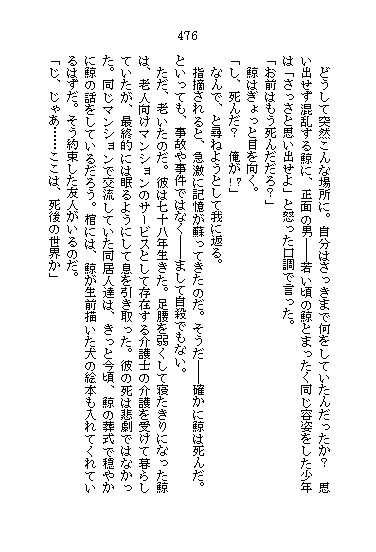 476
　どうして突然こんな場所に。自分はさっきまで何をしていたんだったか？　思
い出せず混乱する鯨に、正面の男――若い頃の鯨とまったく同じ容姿をした少年
は「さっさと思い出せよ」と怒った口調で言った。
「お前はもう死んだだろ？」
　鯨はぎょっと目を向く。
「し、死んだ？　俺が！？」
　なんで、と尋ねようとして我に返る。
　指摘されると、急激に記憶が蘇ってきたのだ。そうだ――確かに鯨は死んだ。
といっても、事故や事件ではなく――まして自殺でもない。
　ただ、老いたのだ。彼は七十八年生きた。足腰を弱くして寝たきりになった鯨
は、老人向けマンションのサービスとして存在する介護士の介護を受けて暮らし
ていたが、最終的には眠るようにして息を引き取った。彼の死は悲劇ではなかっ
た。同じマンションで交流していた同居人達は、きっと今頃、鯨の葬式で穏やか
に鯨の話をしているだろう。棺には、鯨が生前描いた犬の絵本も入れてくれてい
るはずだ。そう約束した友人がいるのだ。
「じ、じゃあ……ここは、死後の世界か」